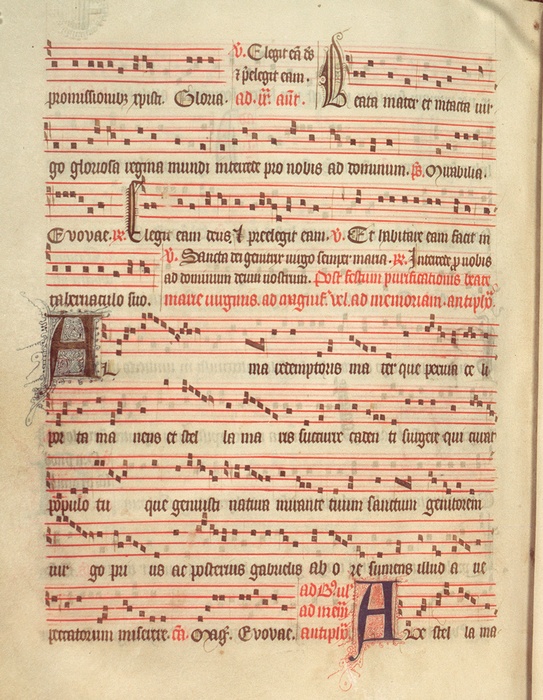 ℣. Elegit eā ds
promissionibꝫ xpisti. Gloria. ad. aūt. Beata mater et intacta uir
go gloriosa regina mundi intercede pro nobis ad dominum. ps.
Evovae. ℟. Elegit eam deus et preelegit eam. ℣. Et habitare eam facit in
℣. Sancta dei genitrix uirgo semper maria. ℟. Intercede ꝓ nobis
ad dominum deum nostrum. Post festum purificationis beate
tabernaculo suo. marie uirginis. ad uel. ad memoriam. antiph
AL ma redemptoris ma ter que peruia ce li
por ta ma nens et stel la ma ris succurre caden ti surgere qui curat
populo tu que genuisti natura mirante tuum sanctum genitorem
uir go pri us ac posterius gabrielis ab o re sumens illud a ue
peccatorum miserere. Mag. Evovae.
ad mem
antiph Aue stel la ma